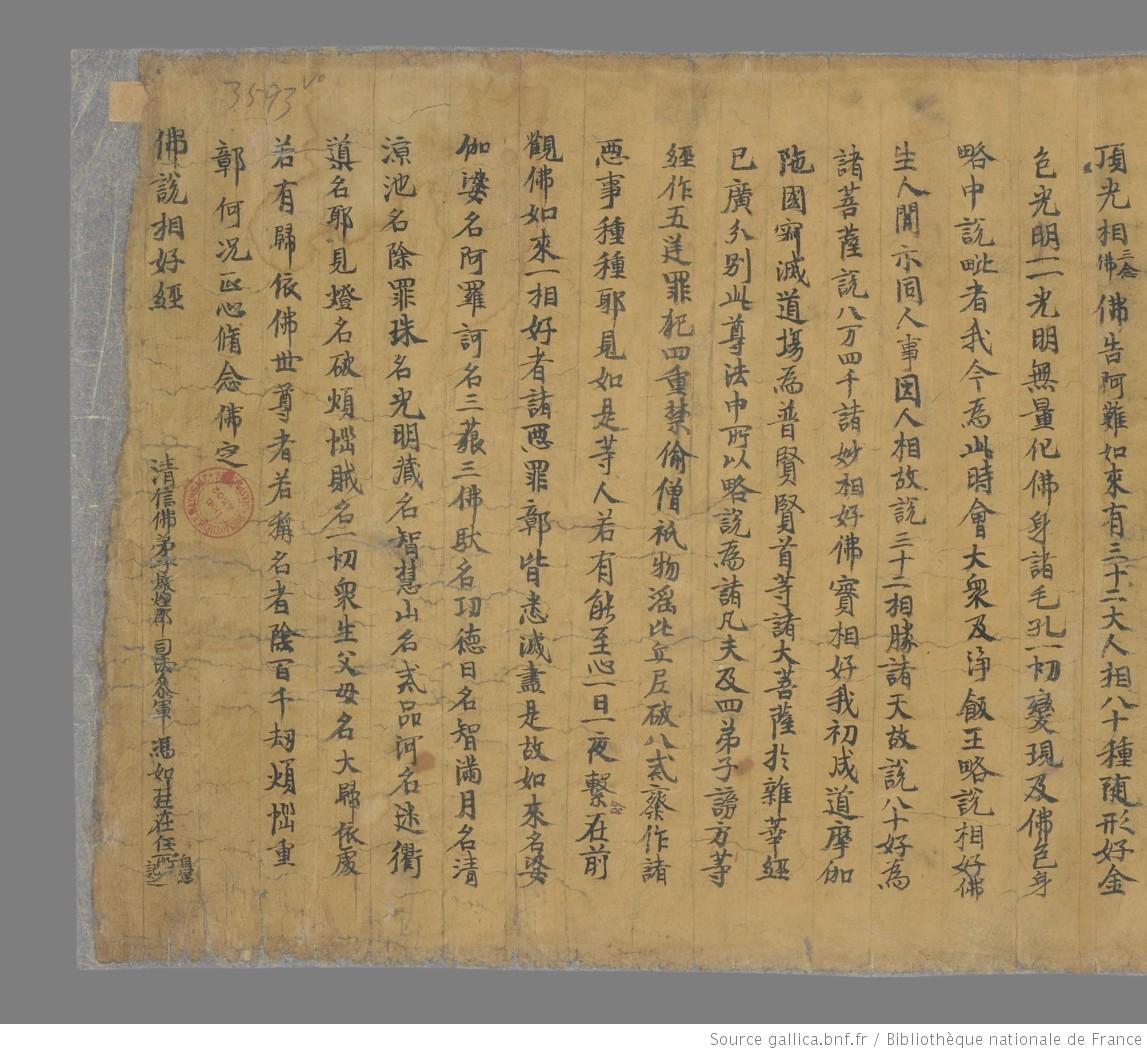 頂光相三念佛佛告阿難如來有三十二大人相八十種随形好金
色光明一一光明無量化佛身諸毛孔一切變現及佛色身
略中說略者我今為此時會大衆及淨飯王略說相好佛
生人間示同人事因人相故說三十二相勝諸天故說八十好為
諸菩薩說八万四千諸妙相好佛實相好我初成道摩伽
陁國寂滅道場為普賢賢首等諸大菩薩於雜華經
已廣分別此尊法中所以略說為諸凡夫及四弟子謗方等
經作五逆罪犯四重禁偷僧祇物淫比丘尼破八戒齋作諸
惡事種種耶見如是等人若有能至心一日一夜繫念在前
觀佛如來一相好者諸惡罪鄣皆悉滅盡是故如來名婆
伽婆名阿羅訶名三藐三佛馱名功德日名智滿月名清
涼池名除罪珠名光明藏名智慧山名戒品河名迷衢
導名耶見燈名破煩惱賊名一切衆生父母名大歸依處
若有歸依佛世尊者若稱名者除百千劫煩惱重
鄣何况正心脩念佛之
佛說相好經
清信佛弟子燉煌郡司法叅軍馮如珪在任所寫記之
3593 v°
Source gallica.bnf.fr / Bibliothèque nationale de France